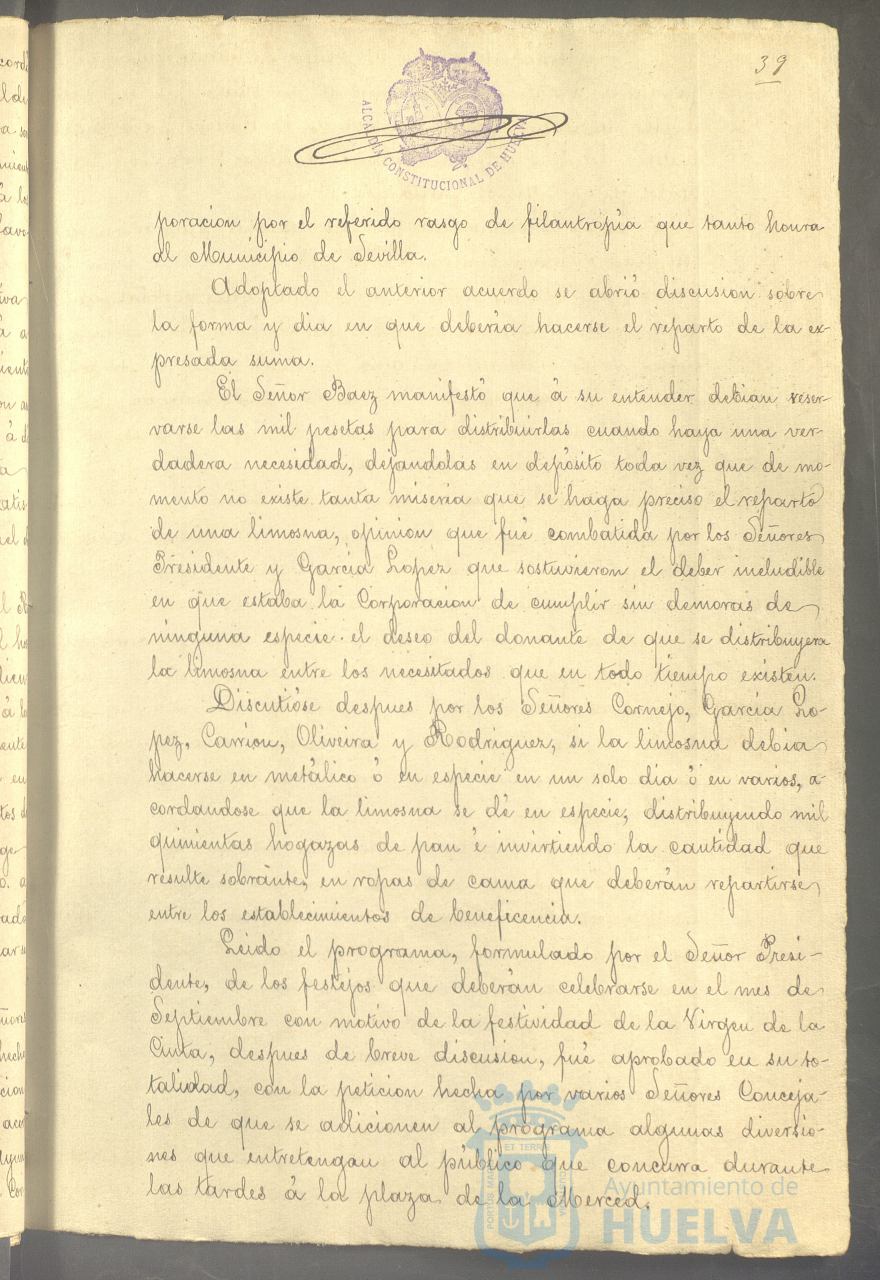 39
ALCALDÍA CONSTITUCIONAL DE HUELVA
poracion por el referido rasgo de filantropía que tanto honra
al Municipio de Sevilla.
Adoptado el anterior acuerdo se abrió discusion sobre
la forma y dia en que debería hacerse el reparto de la ex-
presada suma.
El Señor Baez manifestó que á su entender debian reser-
varse las mil pesetas para distribuirlas cuando haya una ver-
dadera necesidad, dejandolas en depósito toda vez que de mo-
mento no existe tanta miseria que se haga preciso el reparto
de una limosna, opinion que fué combatida por los Señores
Presidente y García Lopez que sostuvieron el deber ineludible
en que estaba la Corporacion de cumplir sin demoras de
ninguna especie el deseo del donante de que se distribuyera
la limosna entre los necesitados que en todo tiempo existen.
Discutióse despues por los Señores Cornejo, García Lo-
pez, Carrion, Oliveira y Rodriguez, si la limosna debia
hacerse en metálico ó en especie en un solo dia ó en varios, a-
cordandose que la limosna se dé en especie, distribuyendo mil
quinientas hogazas de pan é invirtiendo la cantidad que
resulte sobrante, en ropas de cama que deberán repartirse
entre los establecimientos de beneficencia.
Leido el programa, formulado por el Señor Presi-
dente, de los festejos que deberán celebrarse en el mes de
Septiembre con motivo de la festividad de la Virgen de la
Cinta, despues de breve discusion, fué aprobado en su to-
talidad, con la peticion hecha por varios Señores Conceja-
les de que se adicionen al programa algunas diversio-
nes que entretengan al público que concurra durante
las tardes á la plaza de la Merced.
Ayuntamiento de
HUELVA